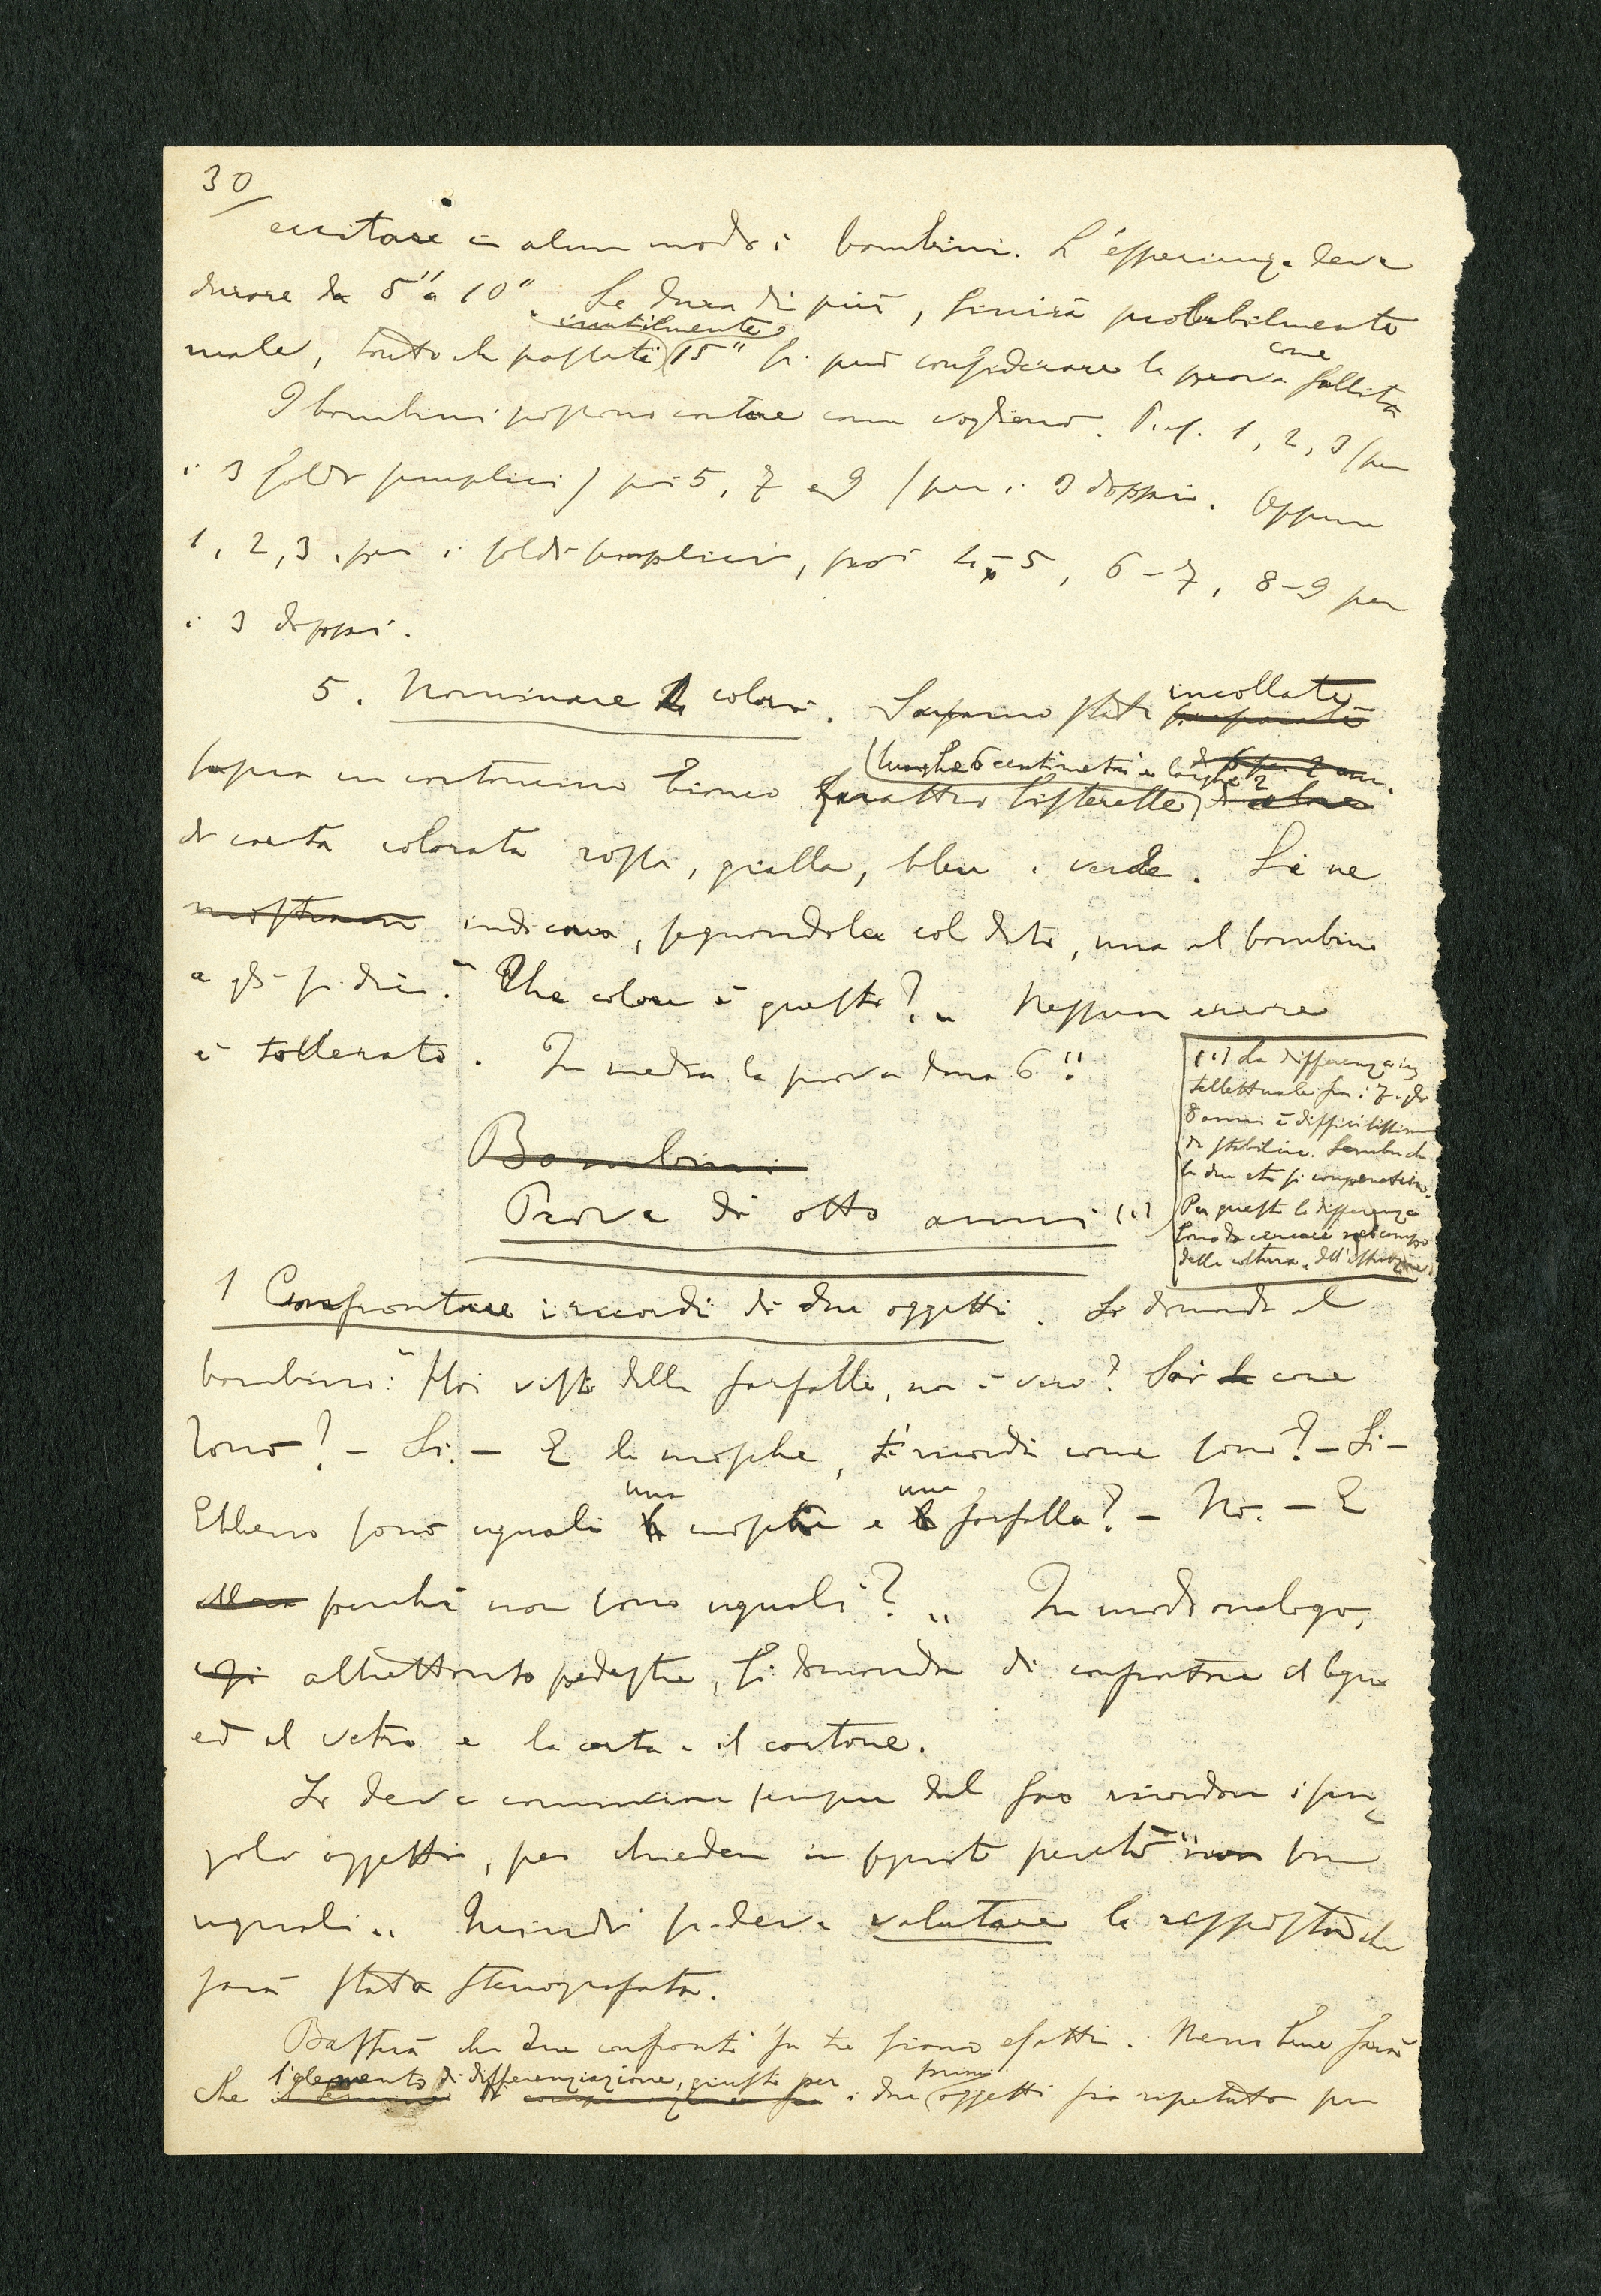 30
eccitare in alcun modo i bambini. L'esperienza deve
durare da 5" a 10". Se dura di più, finirà probabilmente
inutilmente
male, tanto che passati 15" si può considerare la prova come fallita
I bambini possono contare come vogliono. P. es. 1, 2, 3 (per
i 3 soldi semplici) poi 5, 7 e 9 (per i 3 doppi. Oppure
1, 2, 3 per i soldi semplici, poi 4-5, 6-7, 8-9 per
i 3 doppi.
5. Nominare 4 colori. Saranno stati incollate
lunghe 6 centimetri e larghe 2
sopra un cartoncino bianco quattro listerelle
di carta colorata rossa, gialla, bleu e verde. Se ne
mostrano indica, segnandola col dito, una al bambino
e gli si dice: "Che colore è questo?" Nessun errore
è tollerato. In media la prova dura 6".
Bambini
Prove di otto anni (1)
(1) La differenza in
tellettuale fra i 7 e gli
8 anni è difficilissima
da stabilire. Sembra che
le due età si compenetrino.
Per questo le differenze
sono da cercare nel campo
della coltura e dell'istruzione.
1 Confrontare i ricordi di due oggetti. Si domanda al
bambino: "Hai visto delle farfalle, non è vero? Sai come
sono? - Si. - E le mosche, ti ricordi come sono? - Si -
una una
Ebbene sono uguali mosca e farfalla? - No. - E
perché non sono uguali?" In modo analogo,
altrettanto pedestre, si domanda di confrontare il legno
ed il vetro e la carta e il cartone.
Si deve cominciare sempre dal far ricordare i sin
goli oggetti, per chiedere in seguito perché "non sono
uguali" Quindi si deve valutare la risposta che
sarà stata stenografata.
Basterà che due confronti su tre siano esatti. Nemmeno sarà
l'elemento di differenziazione, giusto per primi
che i due oggetti sia ripetuto per